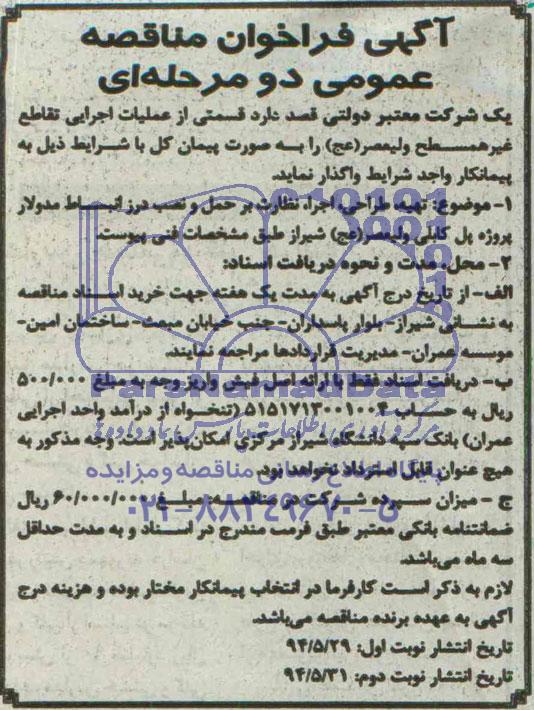 آگهی فراخوان مناقصه
عمومی دو مرحله‌ای
یک شرکت معتبر دولتی قصد دارد قسمتی از عملیات اجرایی تقاطع
غیرهمسطح ولیعصر(عج) را به صورت پیمان کل با شرایط ذیل به
پیمانکار واجد شرایط واگذار نماید.
۱- موضوع: تهیه، طراحی، اجرا، نظارت بر حمل و نصب درز انبساط مدولار
پروژه پل کابلی ولیعصر(عج) شیراز طبق مشخصات فنی پیوست.
۲- محل، مدت و نحوه دریافت اسناد:
الف- از تاریخ درج آگهی به مدت یک هفته جهت خرید اسناد مناقصه
به نشانی شیراز- بلوار پاسداران- جنب خیابان مبعث- ساختمان امین-
موسسه عمران- مدیریت قراردادها مراجعه نمایند.
ب- دریافت اسناد فقط با ارائه اصل فیش واریز وجه به مبلغ ۵۰۰/۰۰۰
ریال به حساب (تنخواه از درآمد واحد اجرایی
عمران) بانک سپه دانشگاه شیراز مرکزی امکان‌پذیر است. وجه مذکور به
هیچ عنوان قابل استرداد نخواهد بود.
ج - میزان سپرده شرکت در مناقصه: مبلغ ۶۰/۰۰۰/۰۰۰ ریال
ضمانتنامه بانکی معتبر طبق فرمت مندرج در اسناد و به مدت حداقل
سه ماه می‌باشد.
لازم به ذکر است کارفرما در انتخاب پیمانکار مختار بوده و هزینه درج
آگهی به عهده برنده مناقصه می‌باشد.
تاریخ انتشار نوبت اول: ۹۴/۵/۲۹
تاریخ انتشار نوبت دوم: ۹۴/۵/۳۱
ParsNamadData
پایگاه اطلاع رسانی مناقصه و مزایده
۰۲۱-۸۸۳۴۹۶۷۰-۵